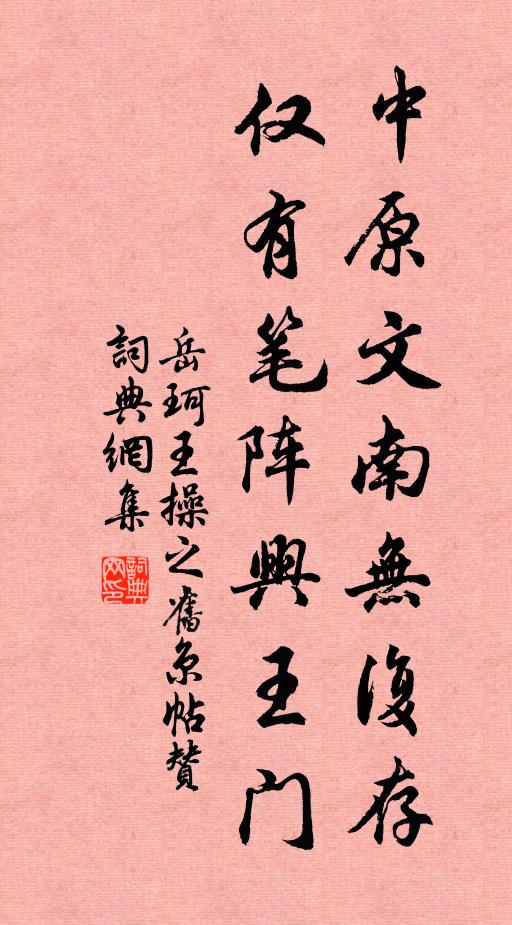 中原文南無復存
仅有笔阵興王门
岳珂王操之舊京帖贊
詞典網集
詞典网印